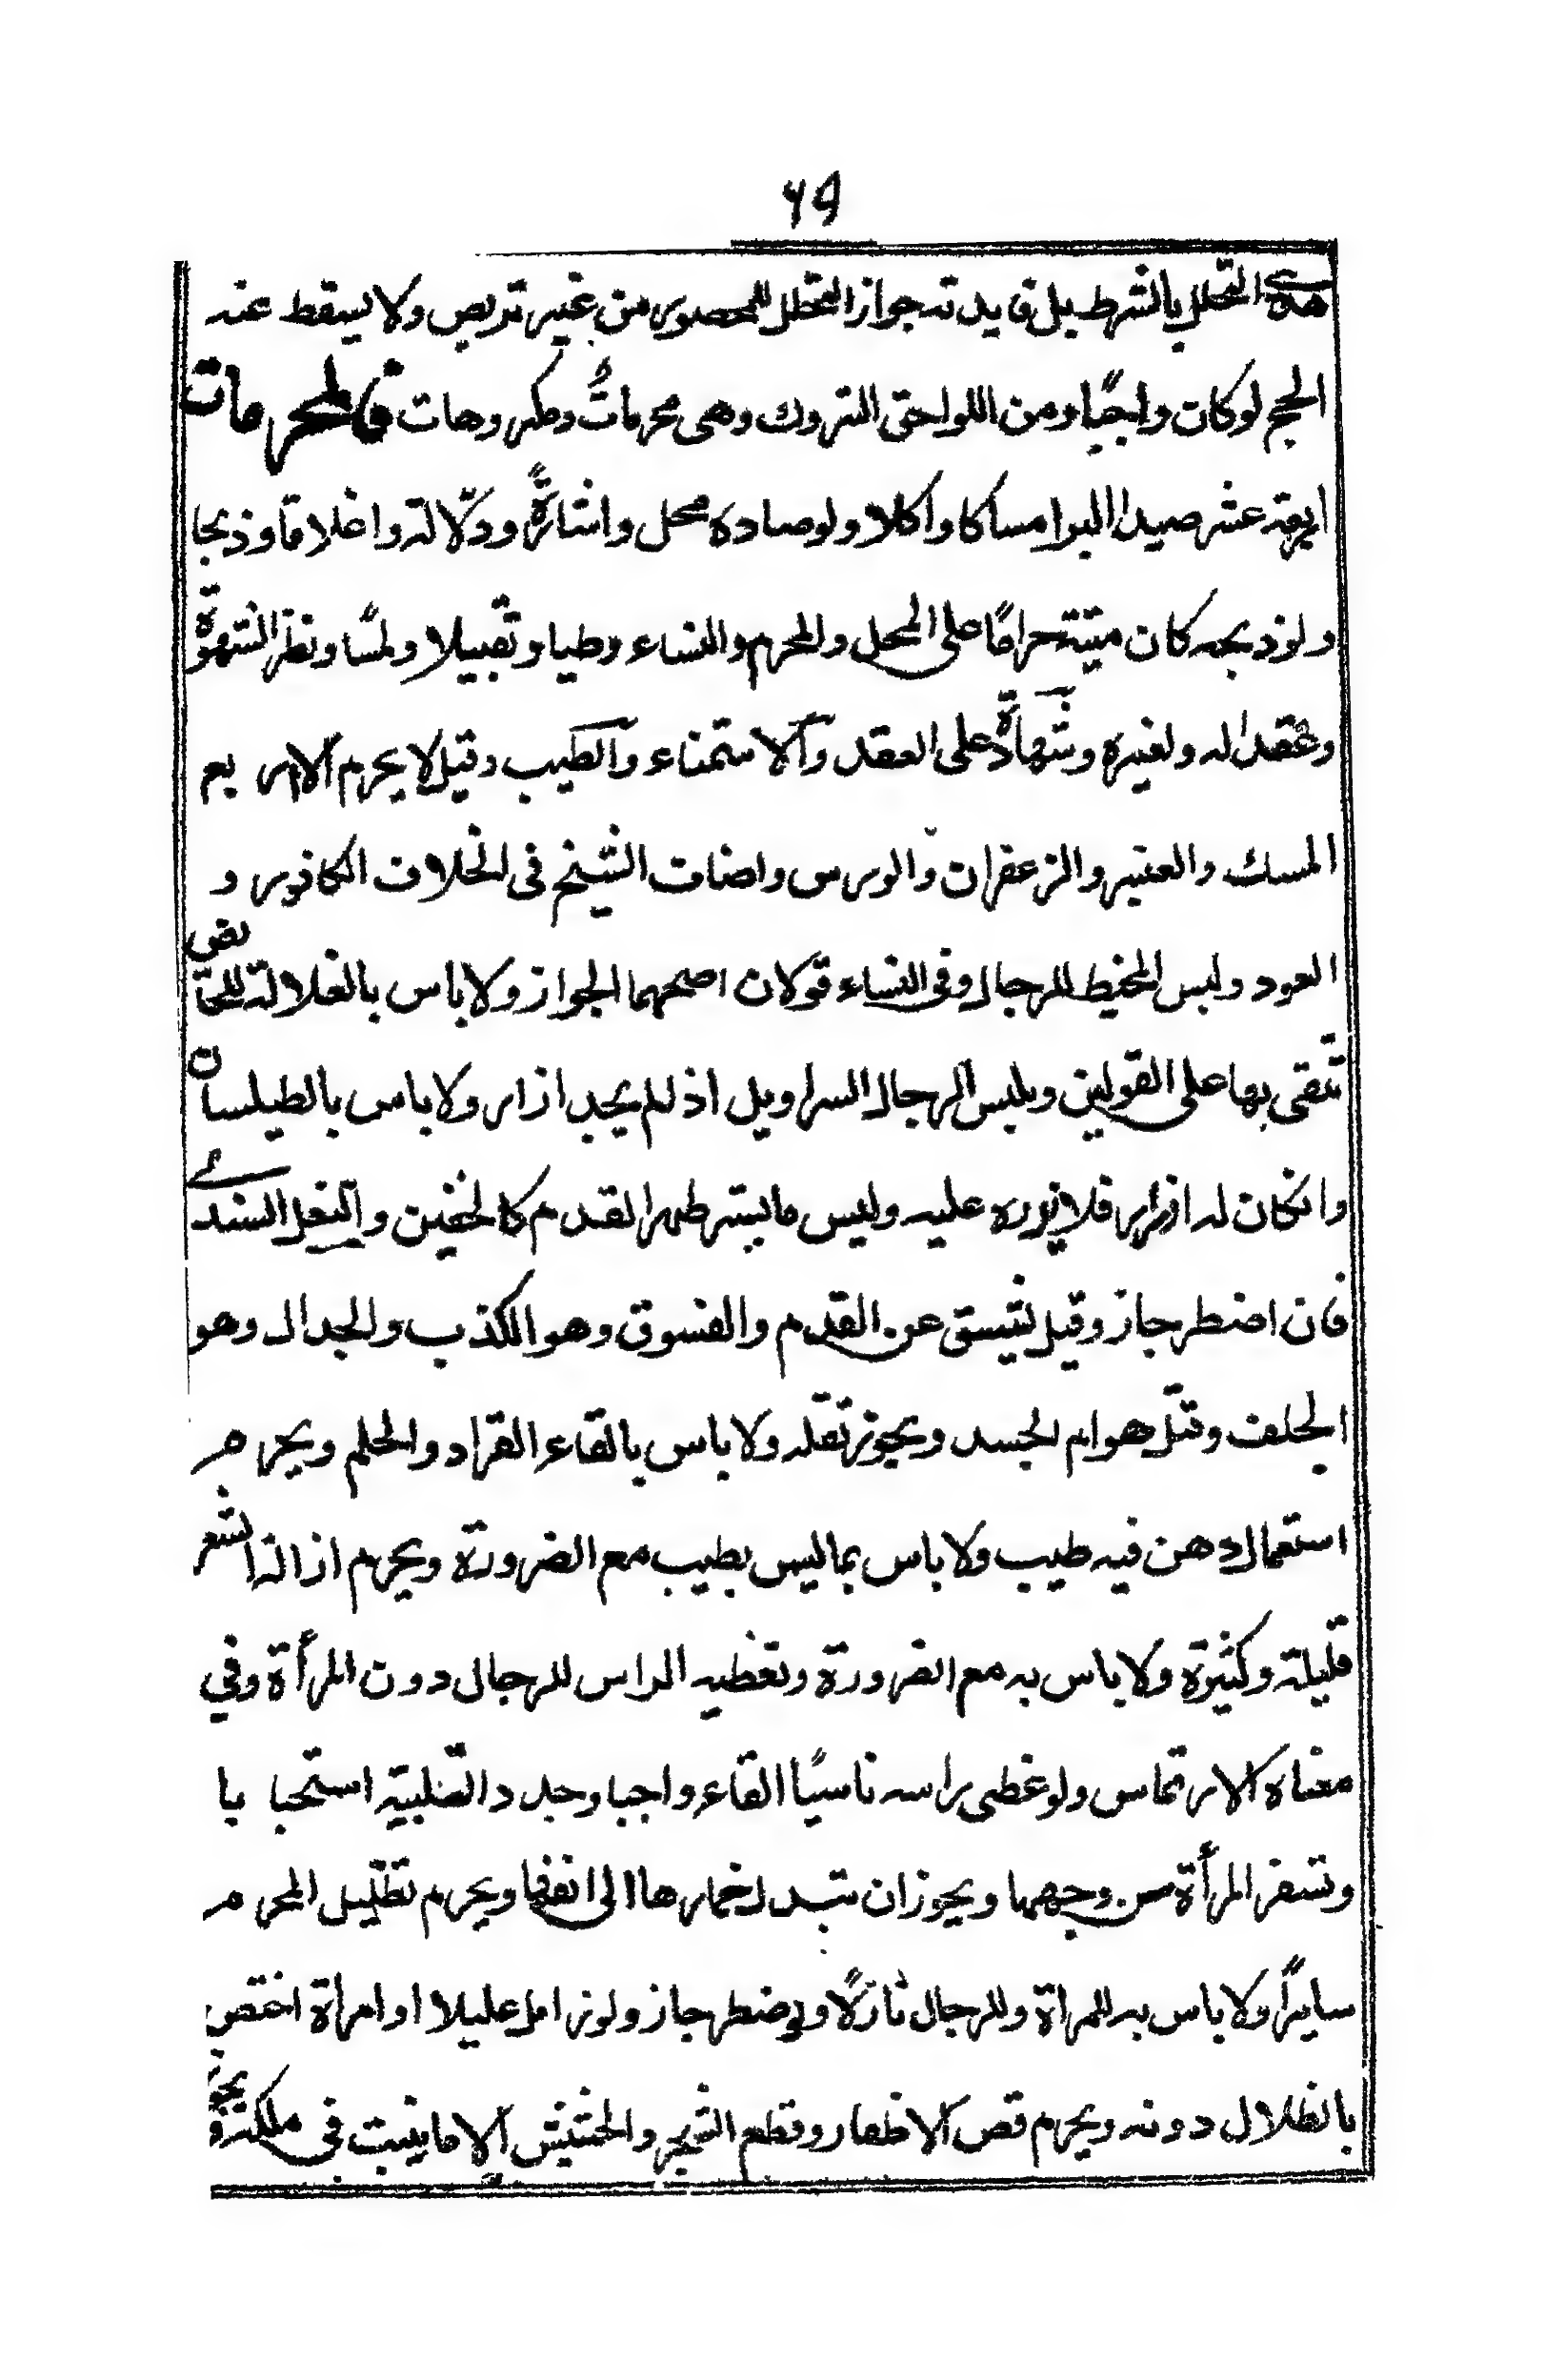 ٦٩
هدي التحلل بالشرط بل فايدته جواز التحلل للمحصور من غير تربص ولا يسقط عنه
الحج لوكان واجبًا ومن اللواحق التروك وهى محرماتٌ ومكروهات فالمحرمات
اربعة عشر صيد البر امساكا واكلا ولو صاده محل واشارةً ودلالة واغلاقا وذبحا
ولو ذبحه كان ميتة حرامًا على المحل والمحرم والنساء وطيا وتقبيلا ولمسًا ونظرا لشهوة
وعقدا له ولغيره وشهادة على العقد والاستمناء والطيب وقيل لا يحرم الا اربع
المسك والعنبر والزعفران والورس واضاف الشيخ فى الخلاف الكافور و
العود ولبس المخيط للرجال وفى النساء قولان اصحهما الجواز ولا باس بالغلالة للحائض
تتقى بها على القولين ويلبس الرجال السراويل اذ لم يجد ازار ولا باس بالطيلسان
وانكان له ازرار فلا يزره عليه ولبس ما يستر ظهر القدم كالخفين والنعل السندي
فان اضطر جاز وقيل يشق عن القدم والفسوق وهو الكذب والجدال وهو
الحلف وقتل هوام الجسد ويجوز نقله ولا باس بالقاء القراد والحلم ويحرم
استعمال دهن فيه طيب ولا باس بما ليس بطيب مع الضرورة ويحرم ازالة الشعر
قليلة وكثيرة ولا باس به مع الضرورة وتغطيه الراس للرجال دون المرأة وفي
معناه الارتماس ولو غطى راسه ناسيًا القاء واجبا وجدد التلبية استحبابا
وتسفر المرأة عن وجهها ويجوز ان تسدل خمارها الى انفها ويحرم تظليل المحرم
سايرًا ولا باس به للمراة وللرجال نازلًا ولو اضطر جاز ولو زامل عليلا او امراة اختص
بالظلال دونه ويحرم قص الاظفار وقطع الشجر والحشيش الا ما ينبت فى ملكه ويجوز